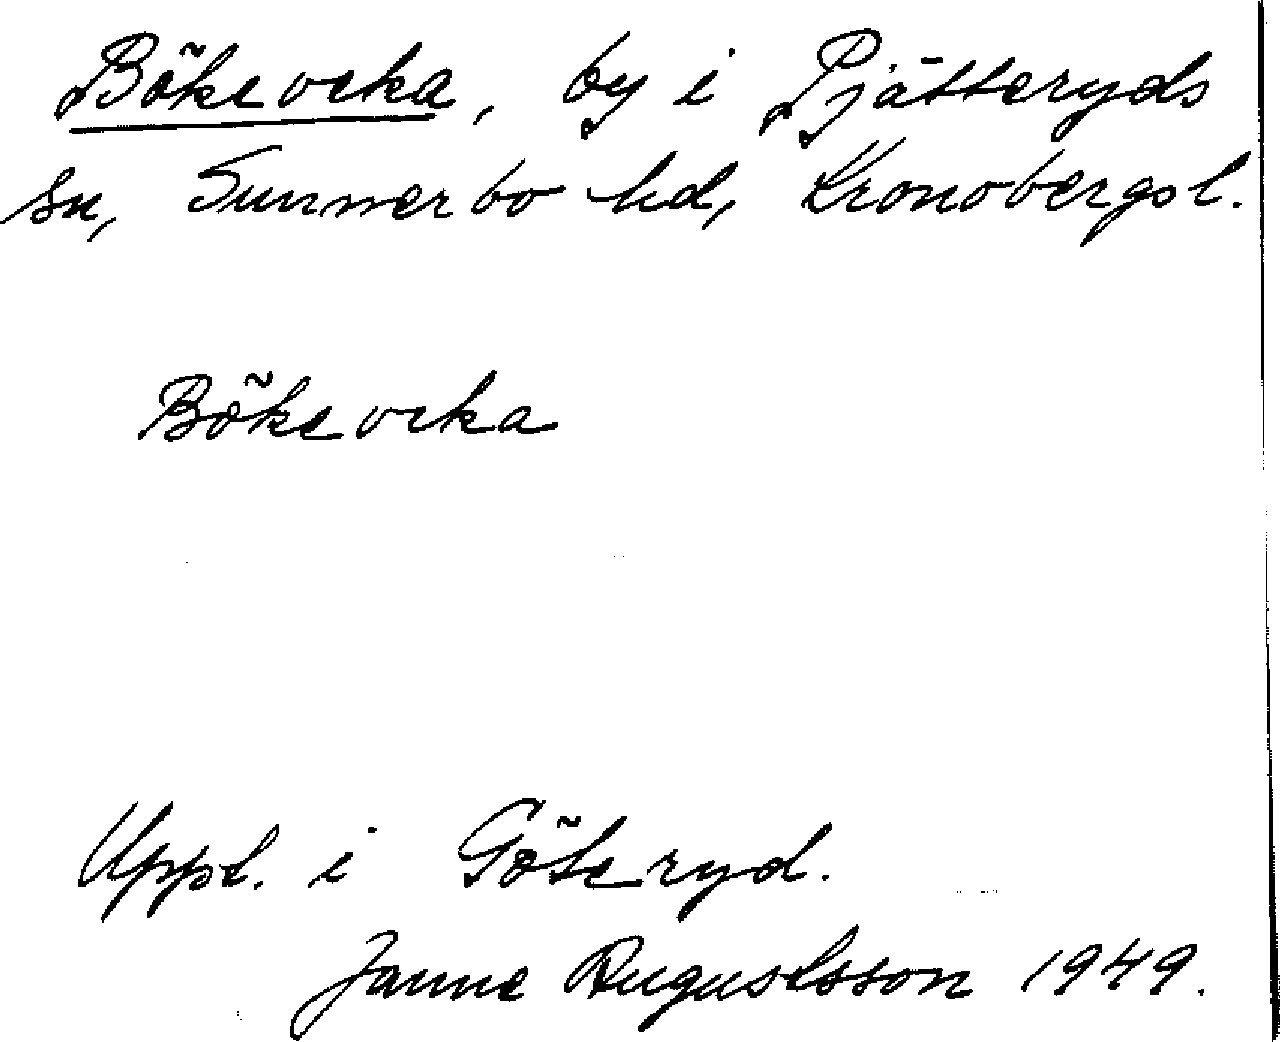 Bökevcka, by i Pjätteryds
sn, Sunnerbo hd, Kronobergs l.
Bökevcka
Uppt. i Göteryd.
Janne Augustsson 1949.